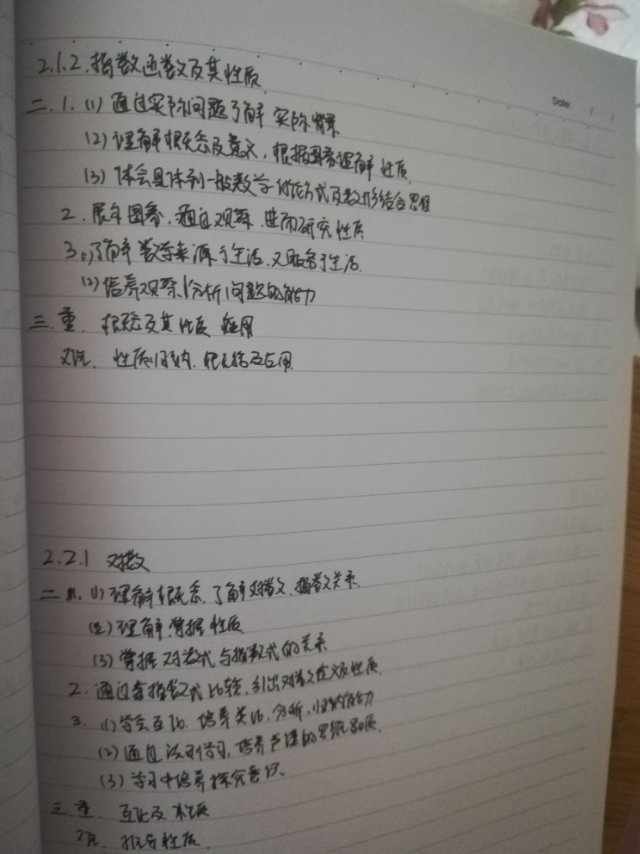 Date: / /
2.1.2.指数函数及其性质
二.1.(1)通过实际问题了解实际背景
(2)理解概念及意义,根据图象理解性质.
(3)体会具体到一般数学讨论方式及数形结合思想
2.展示图象,通过观察,进而研究性质
3.(1)了解数学来源于生活,又服务于生活.
(2)培养观察、分析问题的能力
三.重.概念及其性质 应用
难.性质归纳.概括及应用
2.2.1 对数
二.1.(1)理解概念,了解对数、指数关系.
(2)理解掌握性质
(3)掌握对数式与指数式的关系
2.通过与指数式比较,引出对数定义及性质.
3.(1)学会互化.培养类比,分析,归纳能力
(2)通过法则学习,培养严谨的思维品质.
(3)学习中培养探究意识.
三.重.互化及性质
难.推导性质.